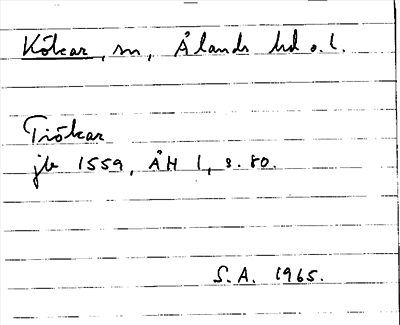 Kökar, sn, Ålands hd o. l.
Tiökar
jb 1559, ÅH 1, s. 80.
S.A. 1965.